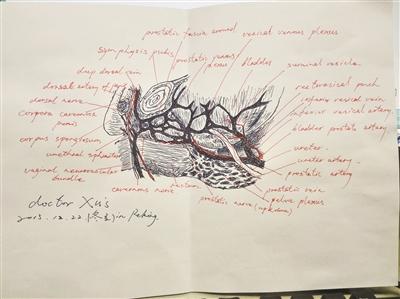 prostatic fascia around
vesical venous plexus
symphysis pubis
prostatic venous
plexus
bladder
seminal vesicle
deep dorsal vein
dorsal artery of penis
rectovesical pouch
inferior vesical vein
dorsal nerve
inferior vesical artery
corpora cavernosa
penis
bladder prostate artery
corpus spongiosum
ureter
urethral sphincter
ureter artery
vaginal neurovascular
bundle
prostatic artery
cavernous nerve
rectum
prostatic vein
pelvic plexus
prostatic nerve (up&down)
doctor Xu's
2015.12.22 in Peking